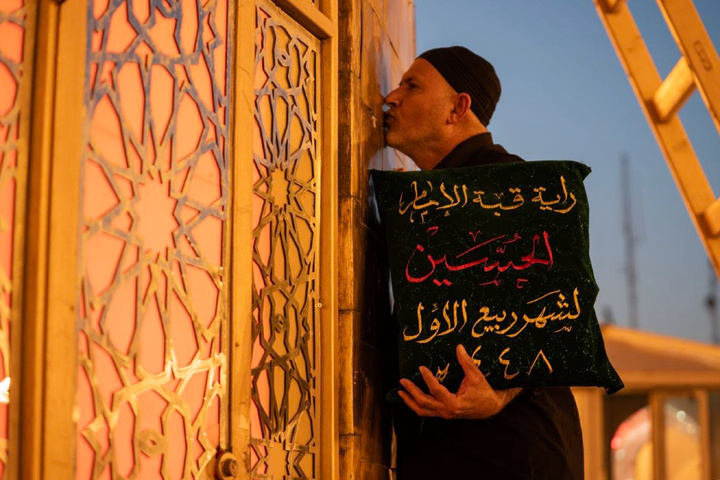 راية قبة الإمام
الحسين
لشهر ربيع الأول
١٤٤٨ هـ